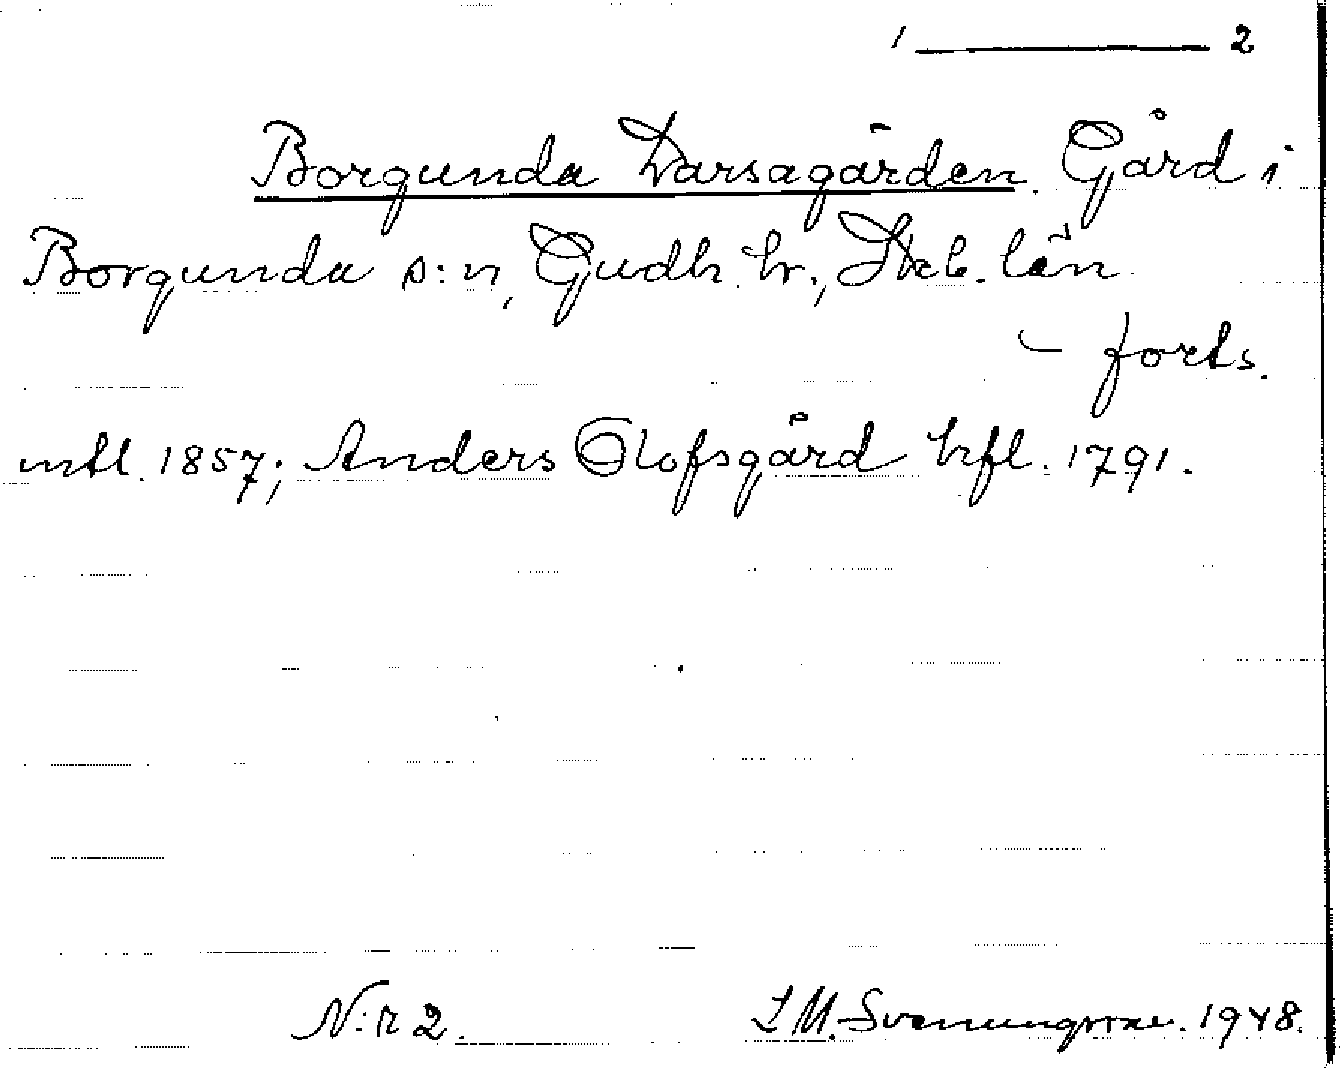 1 — 2
Borgunda Larsagården. Gård i
Borgunda s:n, Gudh. hr., Skb. län
— forts.
mtl. 1857; Anders Olofsgård hfl. 1791.
N:r 2. Svenungsson. 1948.